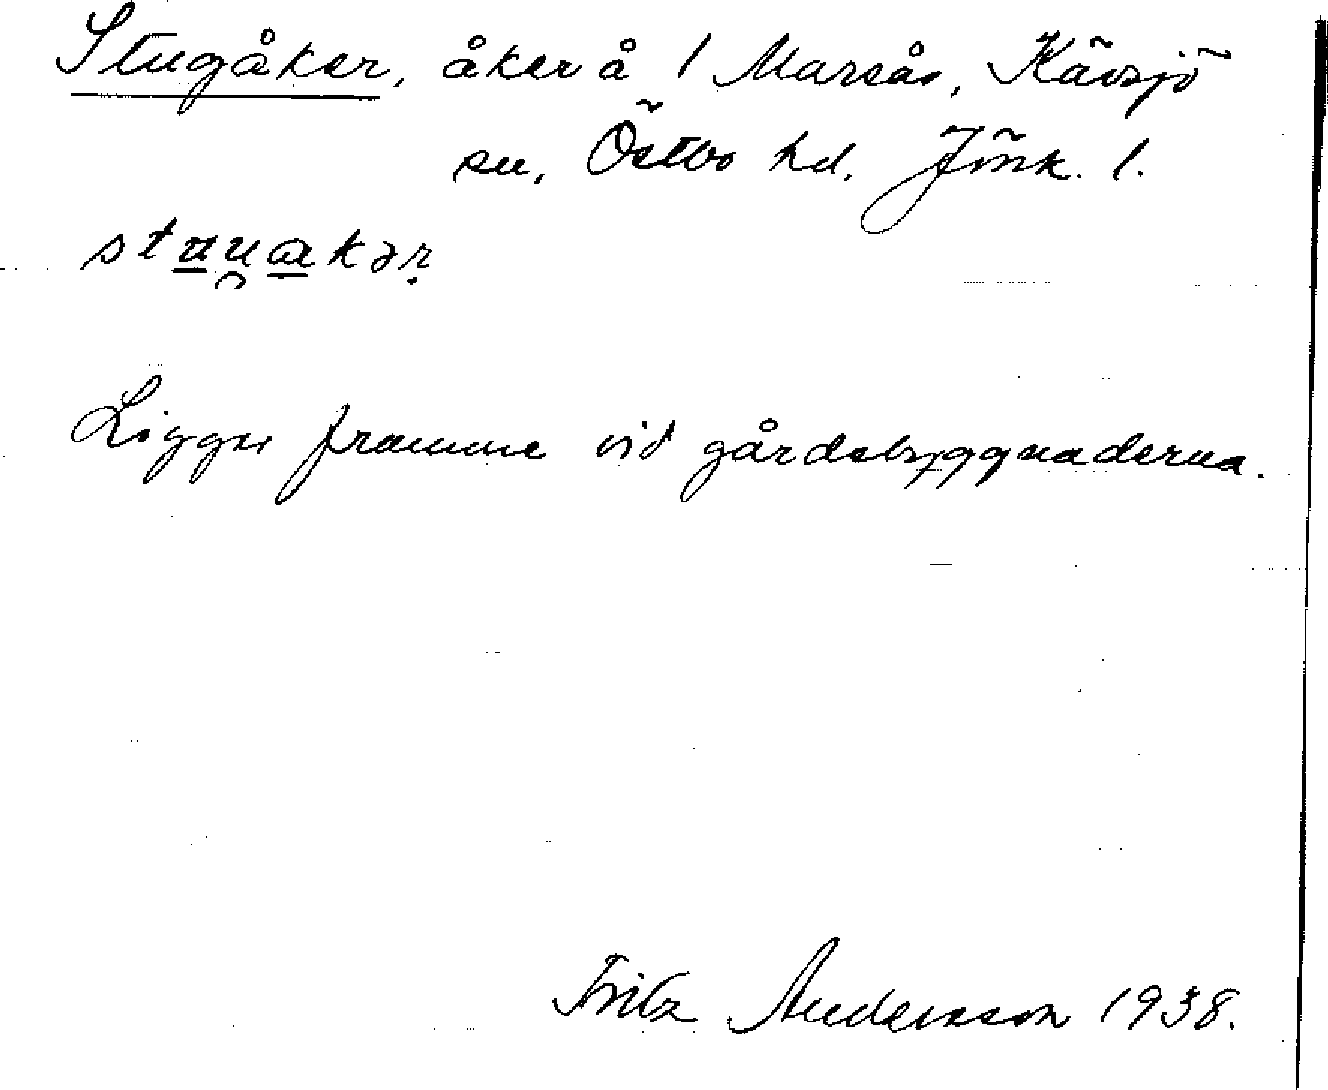 Stugåker, åker å 1 Marsås, Kävsjö
sn, Östbo hd. Jönk. l.
Ligger framme vid gårdsbyggnaderna.
Fritz Andersson 1938.